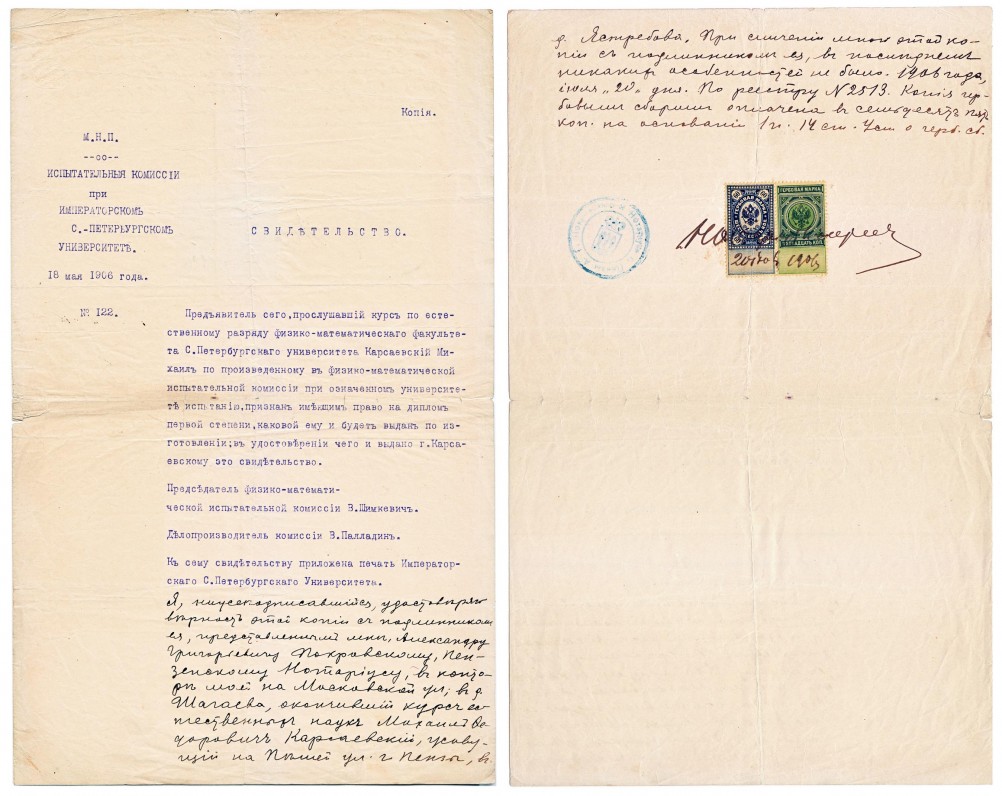 Копія.
М.Н.П.
--оо--
ИСПЫТАТЕЛЬНЫЯ КОМИССІИ
при
ИМПЕРАТОРСКОМЪ
С.-ПЕТЕРБУРГСКОМЪ
УНИВЕРСИТЕТѢ.
СВИДѢТЕЛЬСТВО.
18 мая 1906 года.
№ 122.
Предъявитель сего,прослушавшій курсъ по есте-
ственному разряду физико-математическаго факульте-
та С.Петербургскаго университета Карсаевскій Ми-
хаилъ по произведенному въ физико-математической
испытательной комиссіи при означенномъ университе-
тѣ испытанію,признанъ имѣющимъ право на дипломъ
первой степени,каковой ему и будетъ выданъ по из-
готовленіи;въ удостовѣреніи чего и выдано г.Карса-
евскому это свидѣтельство.
Предсѣдатель физико-математи-
ческой испытательной комиссіи В.Шимкевичъ.
Дѣлопроизводитель комиссіи В.Палладинъ.
Къ сему свидѣтельству приложена печать Император-
скаго С.Петербургскаго Университета.
Я, нижеподписавшійся, удостовѣряю
вѣрность этой копіи съ подлинникомъ
ея, представленнымъ мнѣ, Александру
Григорьевичу Покровскому, Пен-
зенскому Нотаріусу, въ конто-
рѣ моей на Московской ул; въ д.
Шагаева, окончившій курсъ ес-
тественныхъ наукъ Михаилъ Ѳе-
доровичъ Карсаевскій, жуву-
щій на Пѣшей ул. г. Пензы, въ
д. Ястребова. При сличеніи мною этой ко-
піи съ подлинникомъ ея, въ послѣднемъ
никакихъ особенностей не было. 1906 года,
іюля „20" дня. По реестру № 2513. Копія гер-
бовымъ сборомъ оплачена въ семьдесятъ пять
коп. на основаніи 1 п. 14 ст. Уст. о герб. сб.
ГЕРБОВАЯ МАРКА
60
ГЕРБОВАЯ МАРКА
ПЯТНАДЦАТЬ КОП.
20 1906